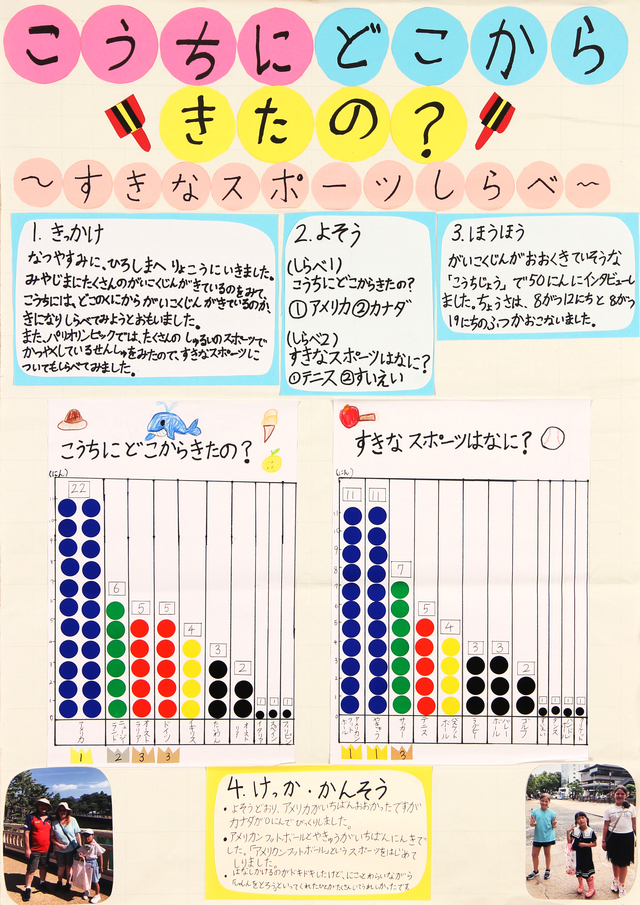 こうちにどこから
きたの?
～すきなスポーツしらべ～
1. きっかけ
なつやすみに、ひろしまへ りょこうにいきました。
みやじまにたくさんのがいこくじんがきているのをみて、
こうちには、どこのくにからがいこくじんがきているのか、
きになりしらべてみようとおもいました。
また、パリオリンピックでは、たくさんの しゅるいのスポーツで
かつやくしているせんしゅをみたので、すきなスポーツに
ついてもしらべてみました。
2. よそう
(しらべ1)
こうちにどこからきたの?
①アメリカ ②カナダ
(しらべ2)
すきなスポーツはなに?
①テニス ②すいえい
3. ほうほう
がいこくじんがおおくきていそうな
「こうちじょう」で50にんにインタビューし
ました。ちょうさは、8がつ12にちと8がつ
19にちのふつかおこないました。
こうちにどこからきたの?
(にん)
22
6
5
5
4
3
2
1
1
1
アメリカ
ニュージーランド
オーストラリア
ドイツ
イギリス
たいわん
イタリア
スペイン
フィリピン
1
2
3
3
すきな スポーツはなに?
(にん)
11
11
7
5
4
3
3
2
1
1
1
1
アメリカンフットボール
やきゅう
サッカー
テニス
バスケットボール
ラグビー
バレーボール
ゴルフ
1
1
3
4. けっか・かんそう
・よそうどおり、アメリカがいちばんおおかったですが
カナダが0にんでびっくりしました。
・アメリカンフットボールとやきゅうがいちばんにんきで
した。「アメリカンフットボール」というスポーツをはじめて
しりました。
・はなしかけるのがドキドキしたけど、にこにこわらいながら
しゃしんをとろうといってくれたひとがたくさんいてうれしかったです。